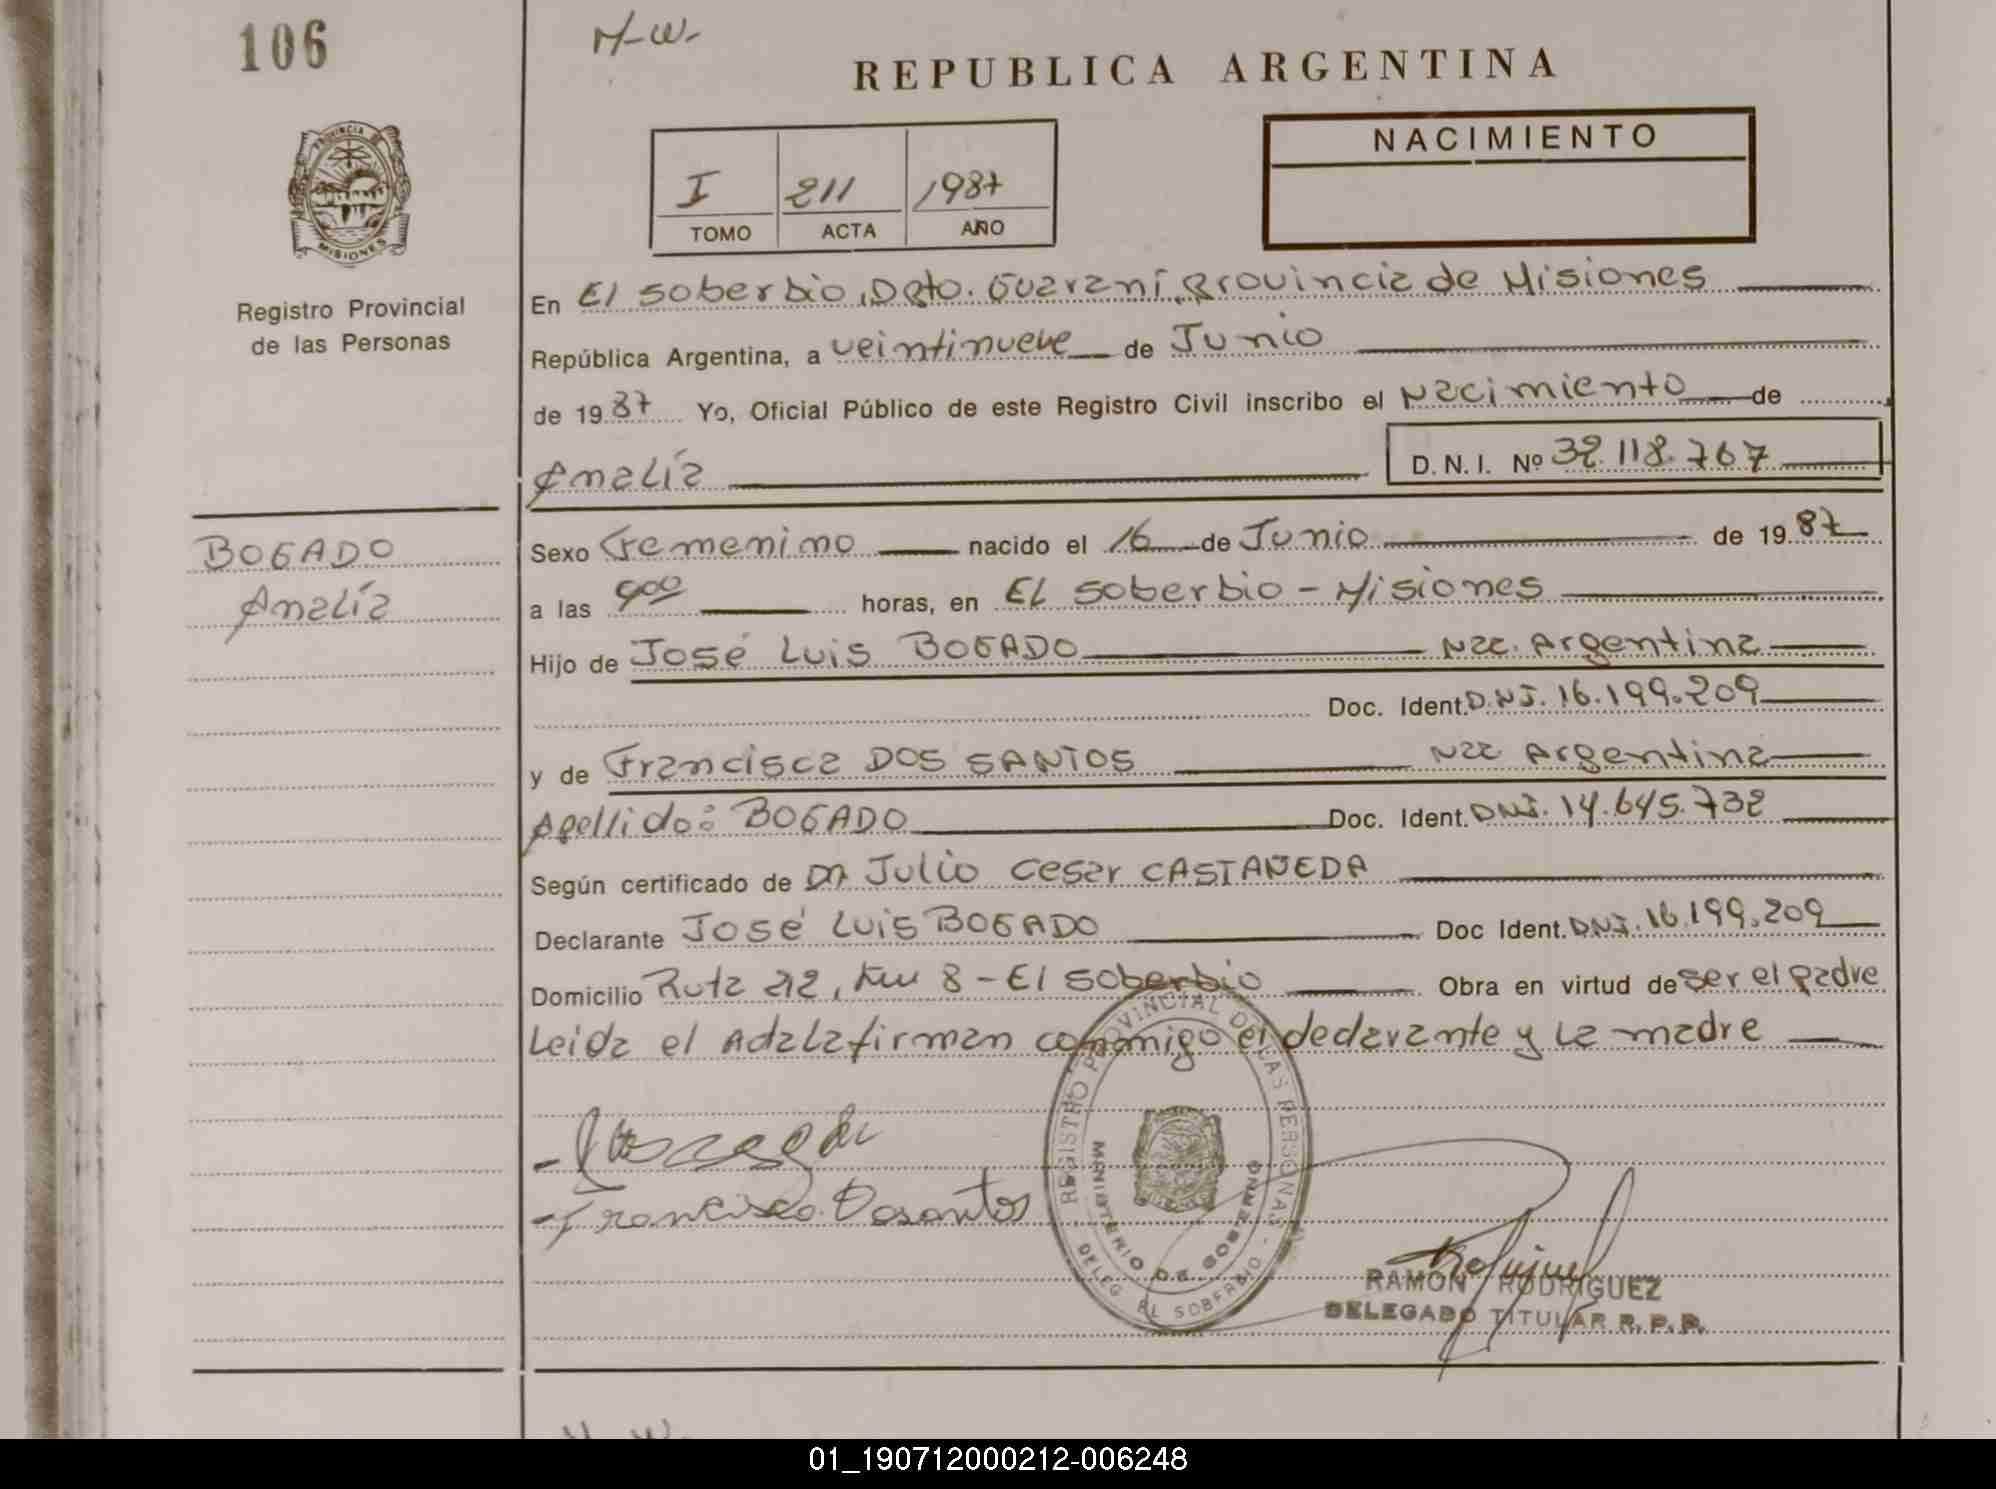 106
M-W-
REPUBLICA ARGENTINA
PROVINCIA DE MISIONES
Registro Provincial
de las Personas
I 211 1987
TOMO ACTA AÑO
NACIMIENTO
En El Soberbio, Dpto. Guaraní, Provincia de Misiones
República Argentina, a veintinueve de Junio
de 1987 Yo, Oficial Público de este Registro Civil inscribo el Nacimiento de
Analía D.N.I. Nº 32.118.767
BOGADO
Analía
Sexo Femenino nacido el 16 de Junio de 1987
a las 900 horas, en El Soberbio - Misiones
Hijo de José Luis BOGADO Nac. Argentina
Doc. Ident. D.N.I. 16.199.209
y de Francisca DOS SANTOS Nac Argentina
Apellido: BOGADO Doc. Ident. DNI. 14.645.732
Según certificado de Dr Julio Cesar CASTAÑEDA
Declarante José Luis BOGADO Doc Ident. DNI. 16.199.209
Domicilio Ruta 212, Km 8 - El Soberbio Obra en virtud de ser el padre
Leida el Acta La firman conmigo el declarante y La madre
REGISTRO PROVINCIAL DE LAS PERSONAS - DELEG EL SOBERBIO
MINISTERIO DE GOBIERNO
- Francisca Dosantos
RAMON RODRIGUEZ
DELEGADO TITULAR R. P. P.
01_190712000212-006248